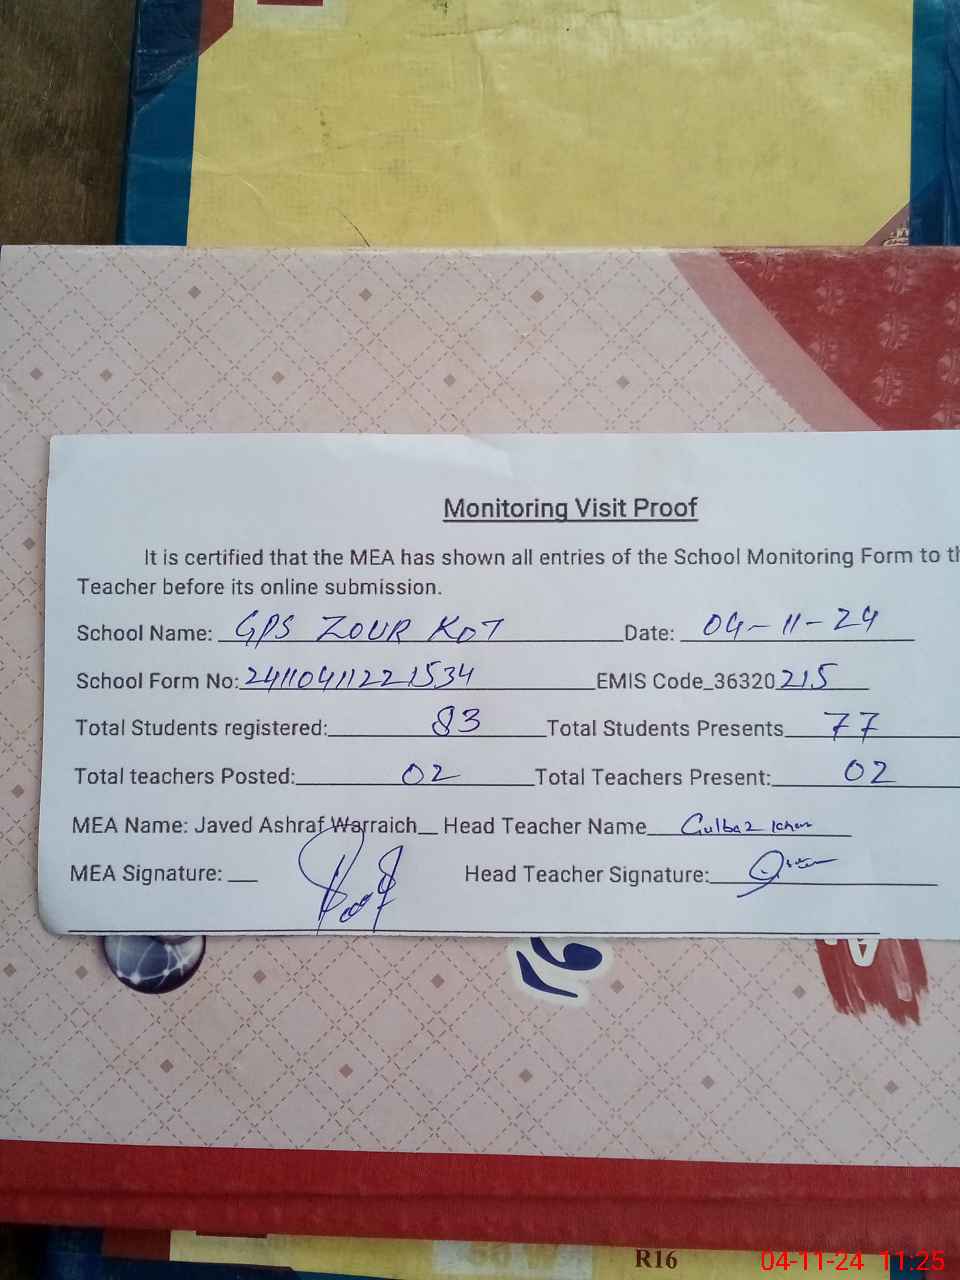 Monitoring Visit Proof
It is certified that the MEA has shown all entries of the School Monitoring Form to th
Teacher before its online submission.
School Name: GPS ZOUR KOT Date: 04-11-24
School Form No: 24110411221534 EMIS Code_36320215
Total Students registered: 83 Total Students Presents 77
Total teachers Posted: 02 Total Teachers Present: 02
MEA Name: Javed Ashraf Warraich Head Teacher Name Gulbaz Khan
MEA Signature: Head Teacher Signature:
R16
04-11-24 11:25